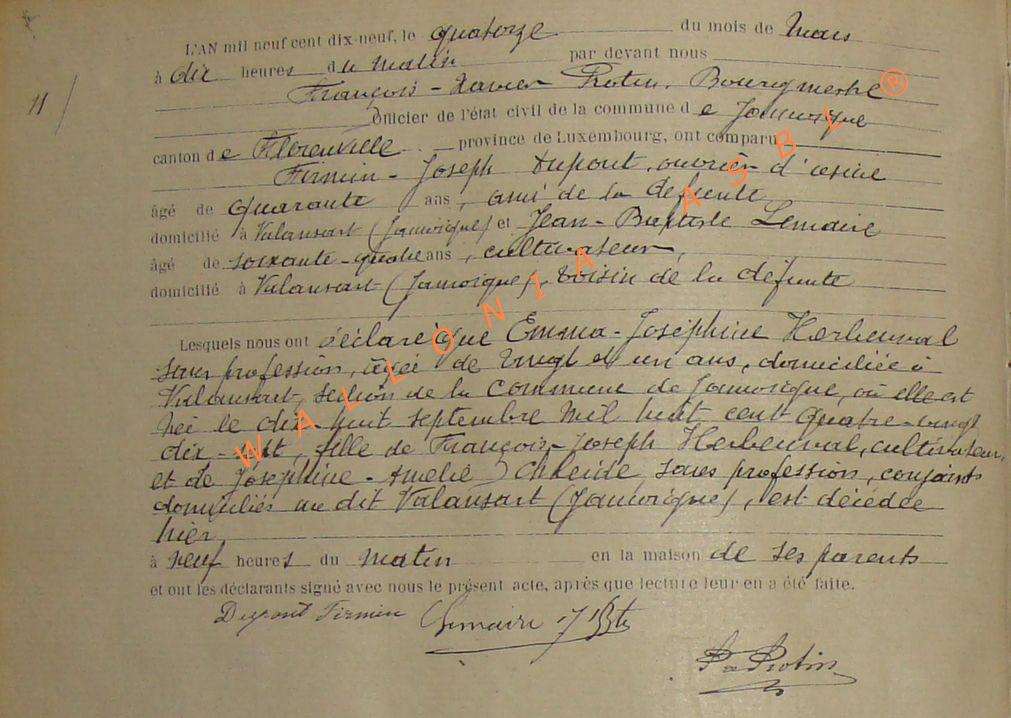 L'AN mil neuf cent dix-neuf, le quatorze du mois de Mars
à dix heures du matin par devant nous
François-Xavier Protin, Bourgmestre
Officier de l'état civil de la commune de Jamoigne
11
canton de Florenville province de Luxembourg, ont comparu
Firmin-Joseph Dupont, ouvrier d'usine
âgé de quarante ans, ami de la défunte
domicilié à Valansart (Jamoigne) et Jean-Baptiste Lemaire
âgé de soixante-quatre ans, cultivateur,
domicilié à Valansart (Jamoigne), voisin de la défunte
Lesquels nous ont déclaré que Emma-Joséphine Herbeuval
sans profession, âgée de vingt et un ans, domiciliée à
Valansart, section de la Commune de Jamoigne, où elle est
née le dix-huit septembre mil huit cent quatre-vingt
dix-sept, fille de François-Joseph Herbeuval, cultivateur,
et de Joséphine-Amélie, sans profession, conjoints
domiciliés au dit Valansart (Jamoigne), est décédée
hier,
à neuf heures du matin en la maison de ses parents
et ont les déclarants signé avec nous le présent acte, après que lecture leur en a été faite.
Dupont Firmin Lemaire J Bte
Protin
WALLONIA ASBL ®